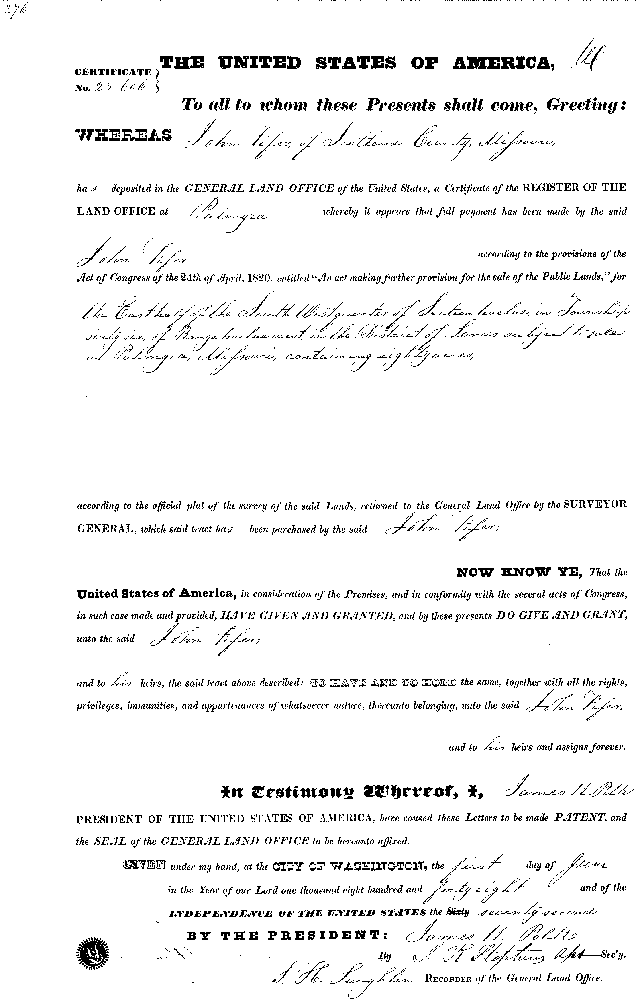 376
THE UNITED STATES OF AMERICA,
CERTIFICATE
No.
To all to whom these Presents shall come, Greeting:
WHEREAS John of County, Missouri,
ha s deposited in the GENERAL LAND OFFICE of the United States, a Certificate of the REGISTER OF THE
LAND OFFICE at Palmyra whereby it appears that full payment has been made by the said
John according to the provisions of the
Act of Congress of the 24th of April, 1820, entitled "An act making further provision for the sale of the Public Lands," for
the East half of the South West quarter of Section twelve, in Township
sixty six, of Range in the District of Lands subject to sale
at Palmyra, Missouri, containing eighty acres,
according to the official plat of the survey of the said Lands, returned to the General Land Office by the SURVEYOR
GENERAL, which said tract has been purchased by the said John
NOW KNOW YE, That the
United States of America, in consideration of the Premises, and in conformity with the several acts of Congress,
in such case made and provided, HAVE GIVEN AND GRANTED, and by these presents DO GIVE AND GRANT,
unto the said John
and to his heirs, the said tract above described: TO HAVE AND TO HOLD the same, together with all the rights,
privileges, immunities, and appurtenances of whatsoever nature, thereunto belonging, unto the said John
and to his heirs and assigns forever.
In Testimony Whereof, I, James K. Polk
PRESIDENT OF THE UNITED STATES OF AMERICA, have caused these Letters to be made PATENT, and
the SEAL of the GENERAL LAND OFFICE to be hereunto affixed.
GIVEN under my hand, at the CITY OF WASHINGTON, the first day of June
in the Year of our Lord one thousand eight hundred and forty eight and of the
INDEPENDENCE OF THE UNITED STATES the Sixty seventy second
BY THE PRESIDENT: James K. Polk
By Sec'y.
S. H. Laughlin RECORDER of the General Land Office.